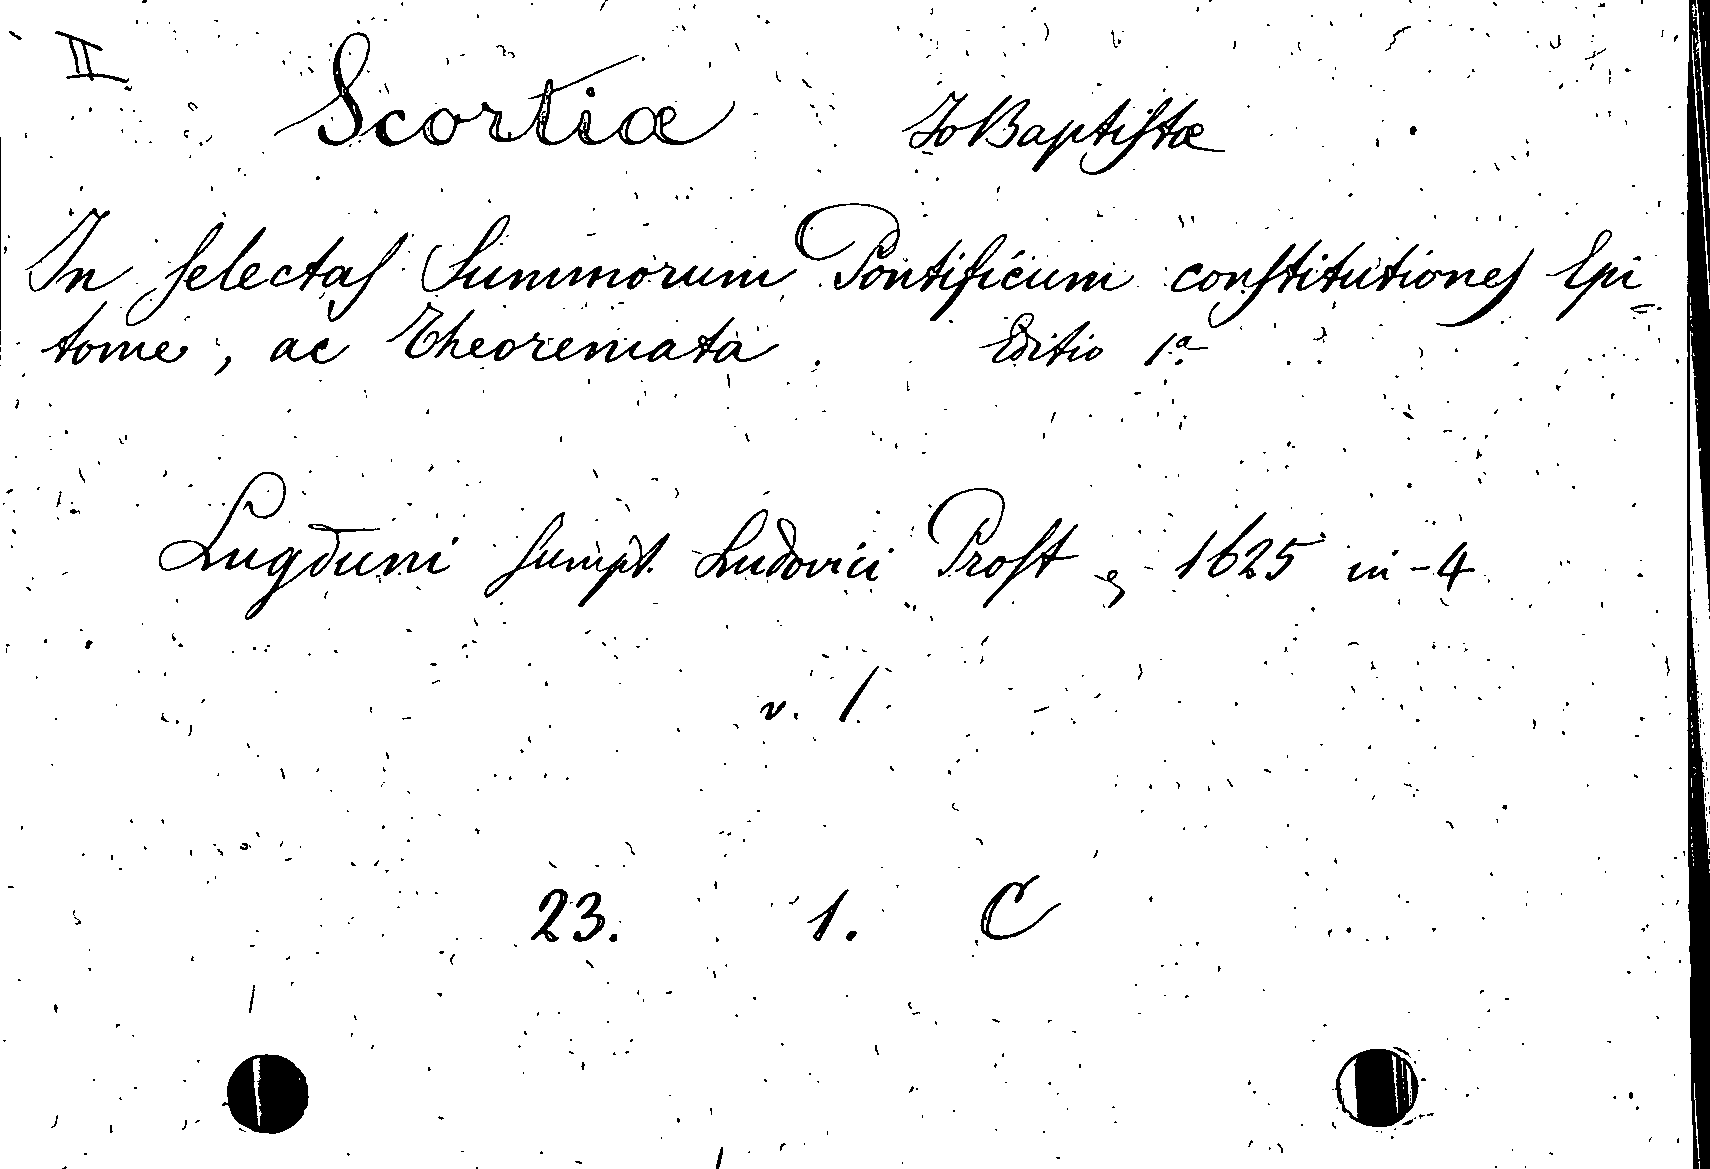 II
Scortiæ Jo Baptistæ
In selectas Summorum Pontificum constitutiones Epi-
tome, ac Theoremata. Editio 1ª
Lugduni sumpt. Ludovici Prost, 1625 in-4
v. 1.
23. 1. C